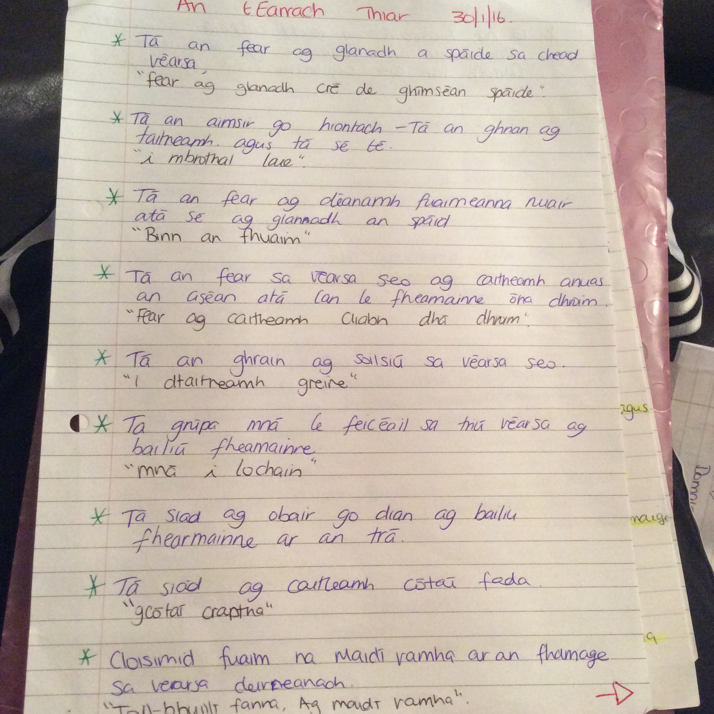 An tEarrach Thiar 30/1/16.
* Tá an fear ag glanadh a spáide sa chead
véarsa
"fear ag glanadh cré de ghimseán spáide".
* Tá an aimsir go hiontach - Tá an ghrian ag
taitneamh agus tá sé té.
"i mbrothal lae".
* Tá an fear ag déanamh fuaimeanna nuair
atá se ag glannadh an spáid
"Binn an fhuaim"
* Tá an fear sa véarsa seo ag caitheamh anuas
an aseán atá lan le fheamainne óna dhruim.
"Fear ag caitheamh Cliabh dhá dhruim".
* Tá an ghrain ag soilsiú sa véarsa seo.
"I dtaitneamh greine"
* Ta grúpa mná le feicéail sa tríú véarsa ag
bailiú fheamainne.
"mná i lochain"
* Tá siad ag obair go dian ag bailiu
fhearmainne ar an trá.
* Tá siad ag caitheamh cótaí fada.
"gcótaí craptha"
* Cloisimid fuaim na maidí ramha ar an fhamage
sa vearsa deirneanach.
"Toll-bhuillí fanna, Ag maidí ramha".
agus